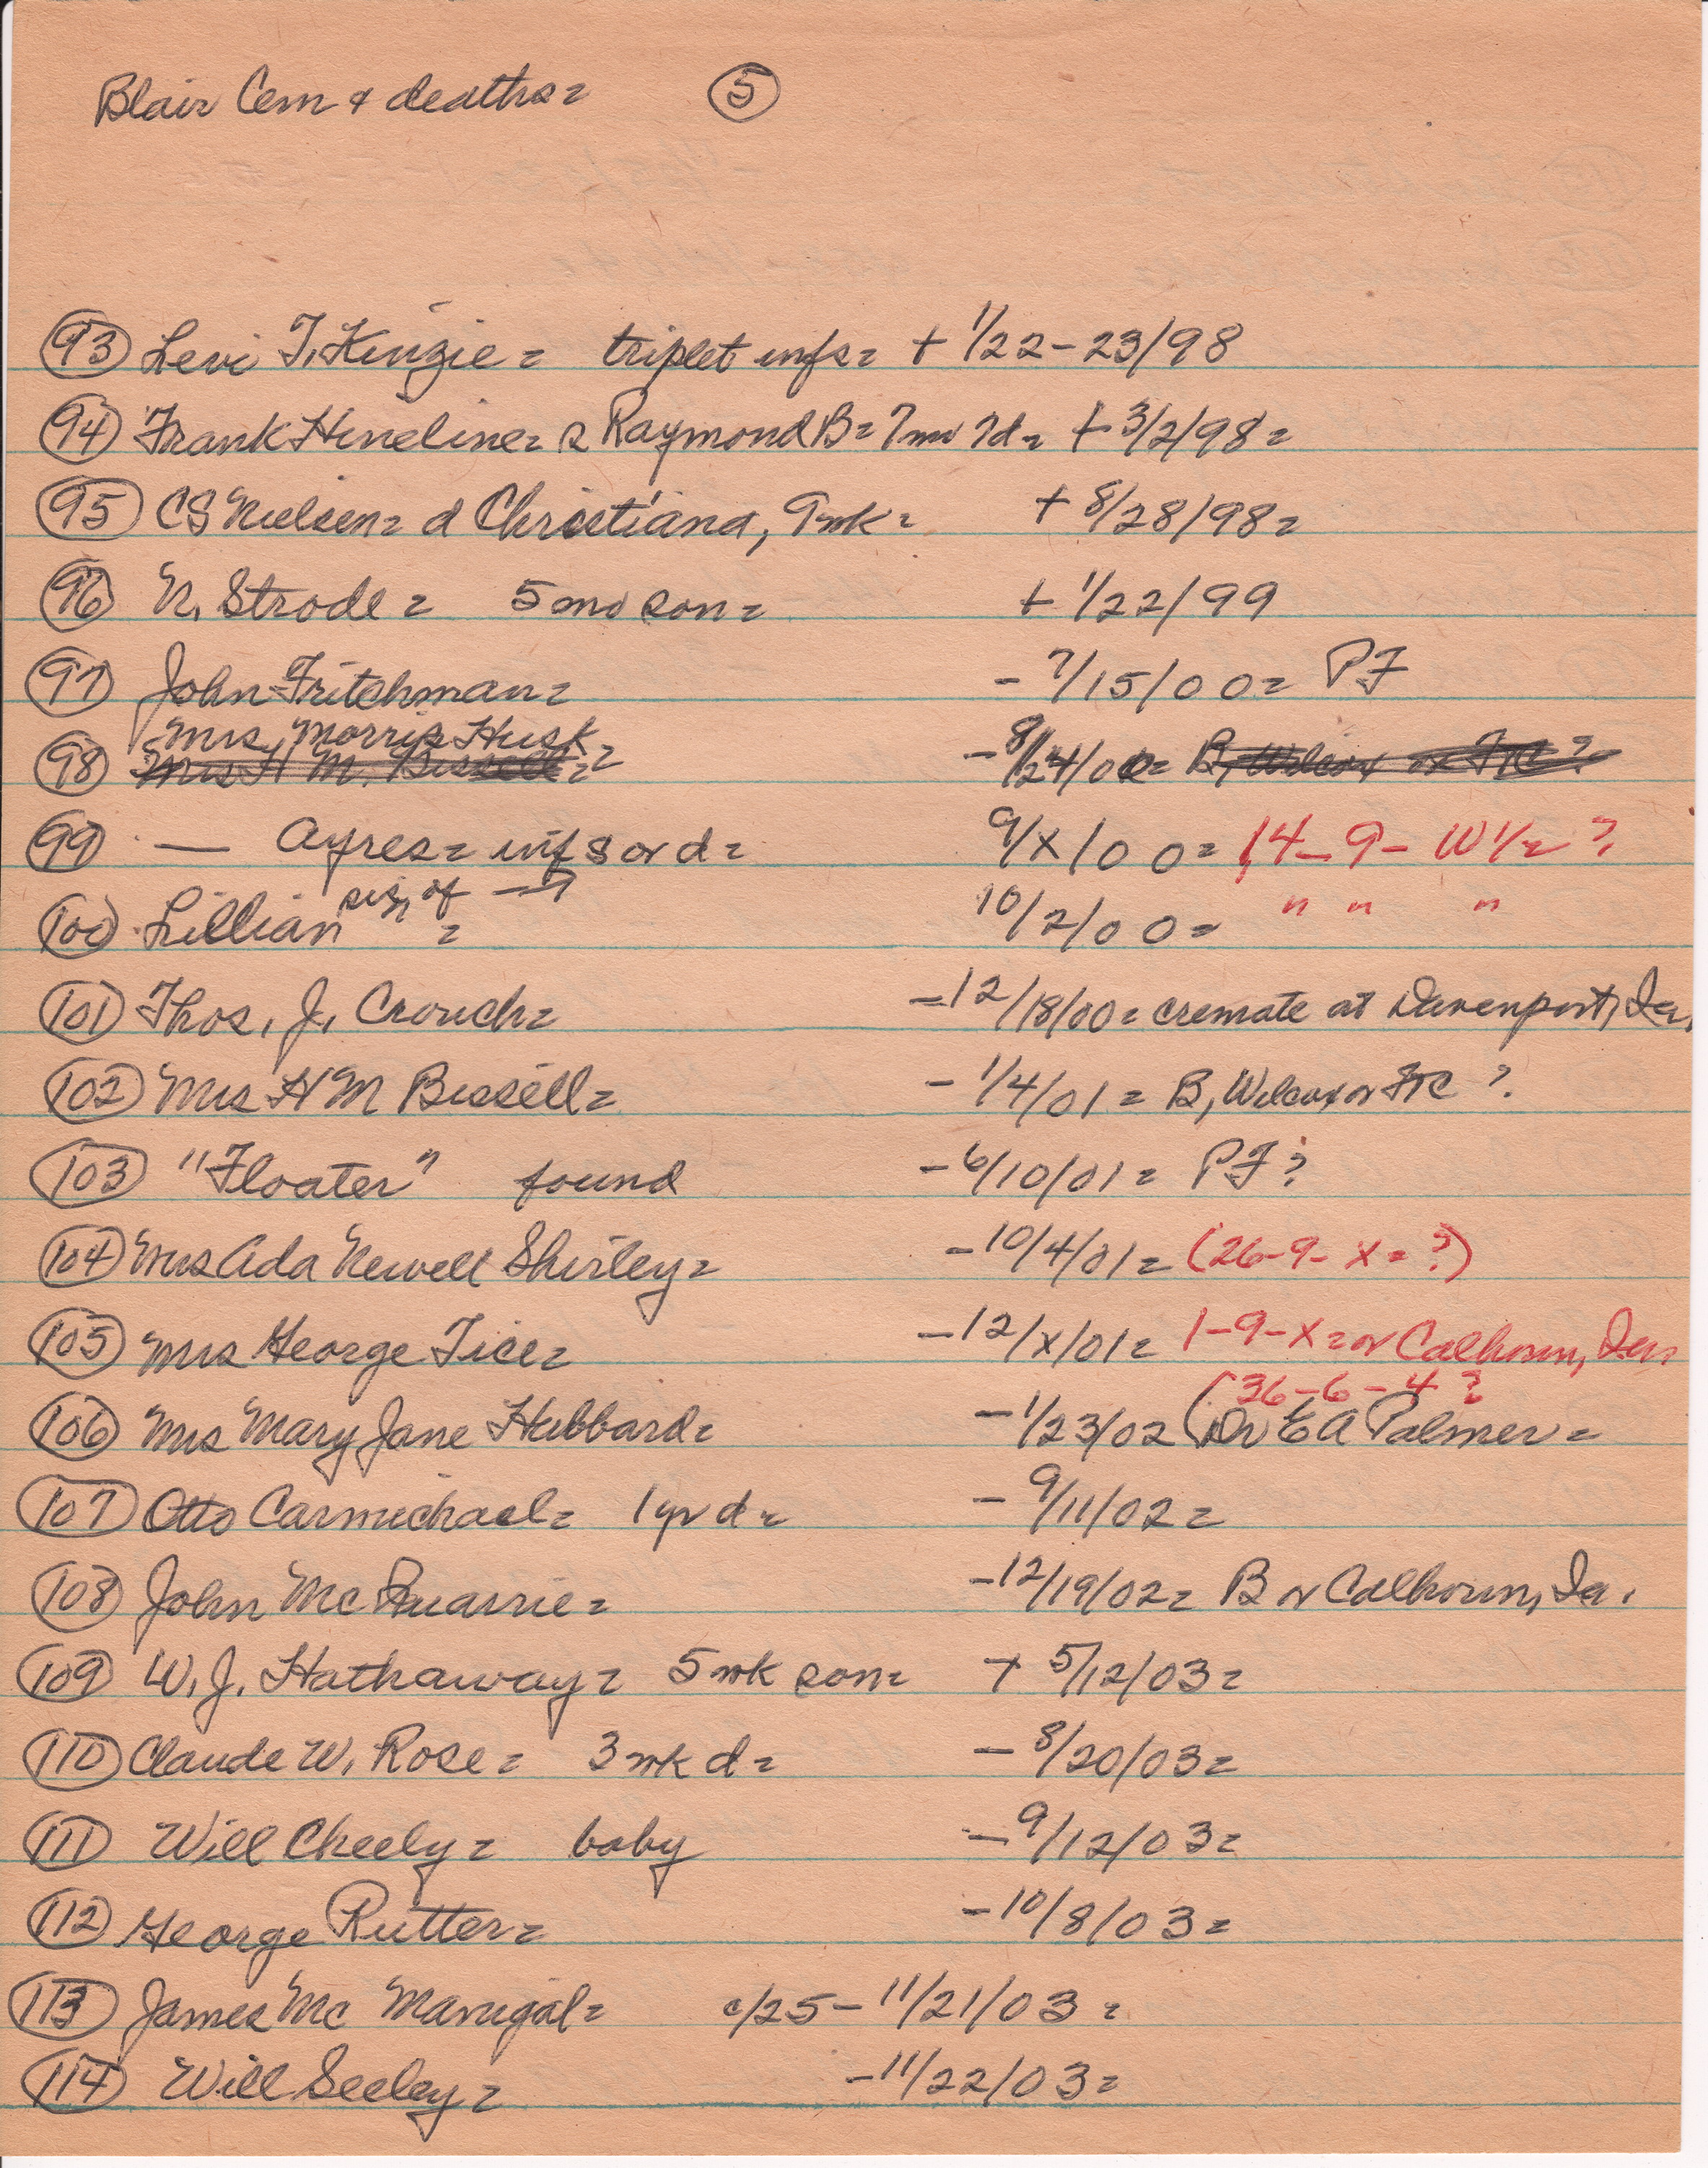 Blair Cem & deaths= 5
93 Levi T. Kinzie = triplet infs= + 1/22-23/98
94 Frank Hineline= s Raymond B= 7mo 7d= + 3/2/98=
95 CS Nielsen= d Christiana, 9wk= + 8/28/98=
96 N. Strode = 5mo son= + 1/22/99
97 John Fritchman= - 7/15/00= PF
Mrs Morris Husk
98 Mrs H M. Bissell= - 8/24/00= B, Wilcox or FTC?
99 — Ayres= inf s or d= 9/x/00= 14-9-W1/2 ?
100 Lillian sis of → = 10/2/00= " " "
101 Thos. J. Crouch= -12/18/00= cremate at Davenport, Ia.
102 Mrs H M Bissell= - 1/4/01= B, Wilcox or FTC ?
103 "Floater" found - 6/10/01= PF?
104 Mrs Ada Newell Shirley= - 10/4/01= (26-9-x=?)
105 Mrs George Tice= - 12/x/01= 1-9-x=or Calhoun, Ia.
(36-6-4 ?
106 Mrs Mary Jane Hubbard= - 1/23/02 (Dr E A Palmer=
107 Otto Carmichael= 1yr d= - 9/11/02=
108 John Mc Quarrie= -12/19/02= B or Calhoun, Ia.
109 W. J. Hathaway= 5wk son= + 5/12/03=
110 Claude W. Rose= 3wk d= - 8/20/03=
111 Will Cheely= baby - 9/12/03=
112 George Rutter= - 10/8/03=
113 James Mc Manigal= c/25 - 11/21/03=
114 Will Seeley= - 11/22/03=